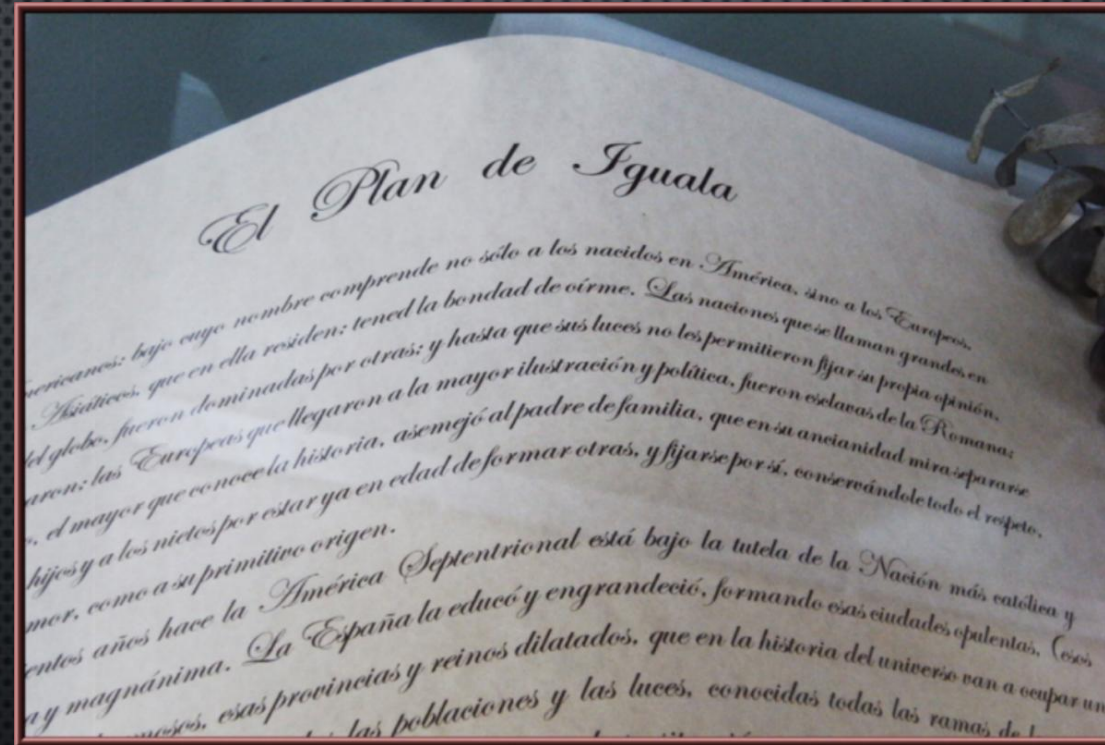 El Plan de Iguala
mericanos: bajo cuyo nombre comprende no sólo a los nacidos en América, sino a los Europeos,
Asiáticos, que en ella residen: tened la bondad de oírme. Las naciones que se llaman grandes en
del globo, fueron dominadas por otras; y hasta que sus luces no les permitieron fijar su propia opinión,
aron; las Europeas que llegaron a la mayor ilustración y política, fueron esclavas de la Romana;
o, el mayor que conoce la historia, asemejó al padre de familia, que en su ancianidad mira separarse
hijos y a los nietos por estar ya en edad de formar otras, y fijarse por sí, conservándole todo el respeto,
mor, como a su primitivo origen.
ientos años hace la América Septentrional está bajo la tutela de la Nación más católica y
a y magnánima. La España la educó y engrandeció, formando esas ciudades opulentas, (esos
mosos, esas provincias y reinos dilatados, que en la historia del universo van a ocupar un
las poblaciones y las luces, conocidas todas las ramas de l